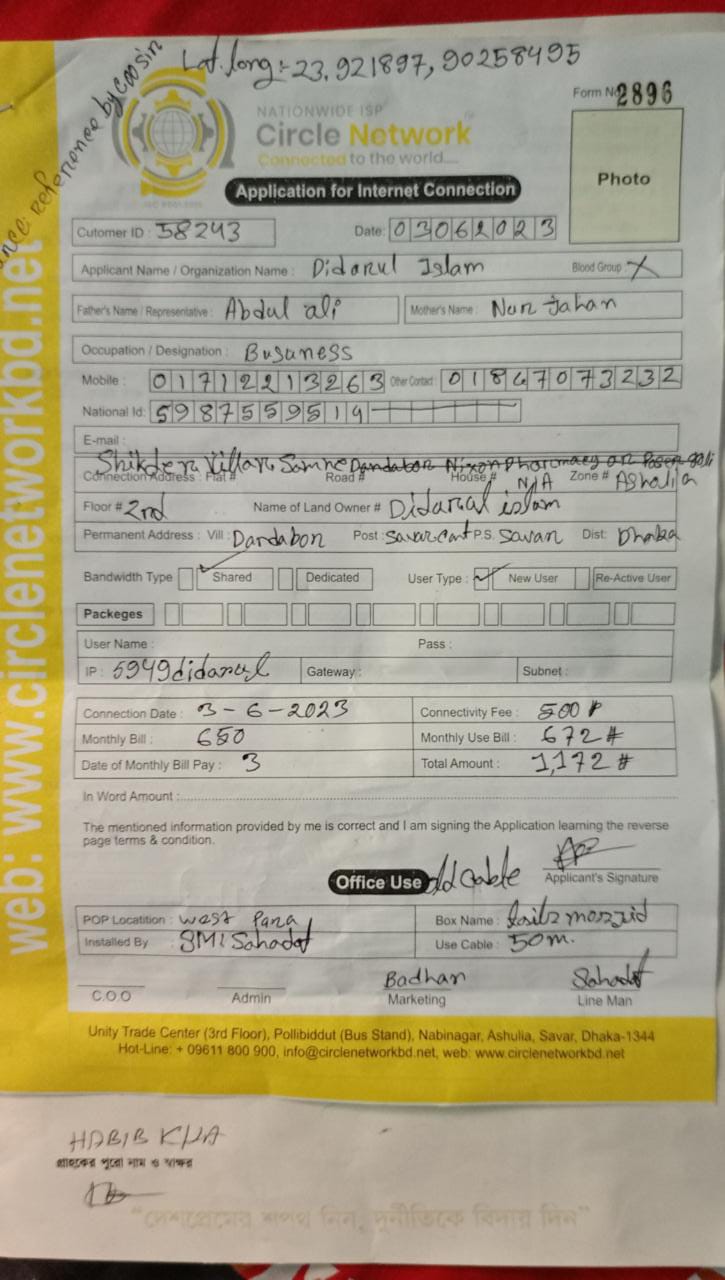 Lat.long:-23.921897, 90258495
reference by coosin
Form No 2896
NATIONWIDE ISP
Circle Network
Connected to the world....
Photo
Application for Internet Connection
Cutomer ID : 58243 Date: 03062023
Applicant Name / Organization Name : Didarul Islam Blood Group : X
Father's Name / Representative : Abdul ali Mother's Name : Nur Jahan
Occupation / Designation : Busuness
Mobile : 01712213263 Other Contact : 01867073232
National Id: 5987559519
E-mail :
Shikder Villa, Samne Dandabor Nixon Pharomacy ar Paser goli
Connection Address : Flat # Road # House # N/A Zone # Ashalia
Floor # 2nd Name of Land Owner # Didarul islam
Permanent Address : Vill : Dandabon Post : Savar cant P.S. Savar Dist: Dhaka
Bandwidth Type Shared Dedicated User Type : New User Re-Active User
Packeges
User Name : Pass :
IP : 5949didarul Gateway : Subnet :
Connection Date : 3-6-2023 Connectivity Fee : 500
Monthly Bill : 650 Monthly Use Bill : 672 #
Date of Monthly Bill Pay : 3 Total Amount : 1,172 #
In Word Amount :
The mentioned information provided by me is correct and I am signing the Application learning the reverse
page terms & condition.
Office Use old cable Applicant's Signature
POP Locatition : west Para Box Name :
Installed By : SMI Sahadat Use Cable : 50m.
Badhan Sahadat
C.O.O Admin Marketing Line Man
Unity Trade Center (3rd Floor), Pollibiddut (Bus Stand), Nabinagar, Ashulia, Savar, Dhaka-1344
Hot-Line: + 09611 800 900, info@circlenetworkbd.net, web: www.circlenetworkbd.net
web: www.circlenetworkbd.net
HABIB KHA
গ্রাহকের পুরো নাম ও স্বাক্ষর
“দেশপ্রেমের শপথ নিন, দুর্নীতিকে বিদায় দিন”